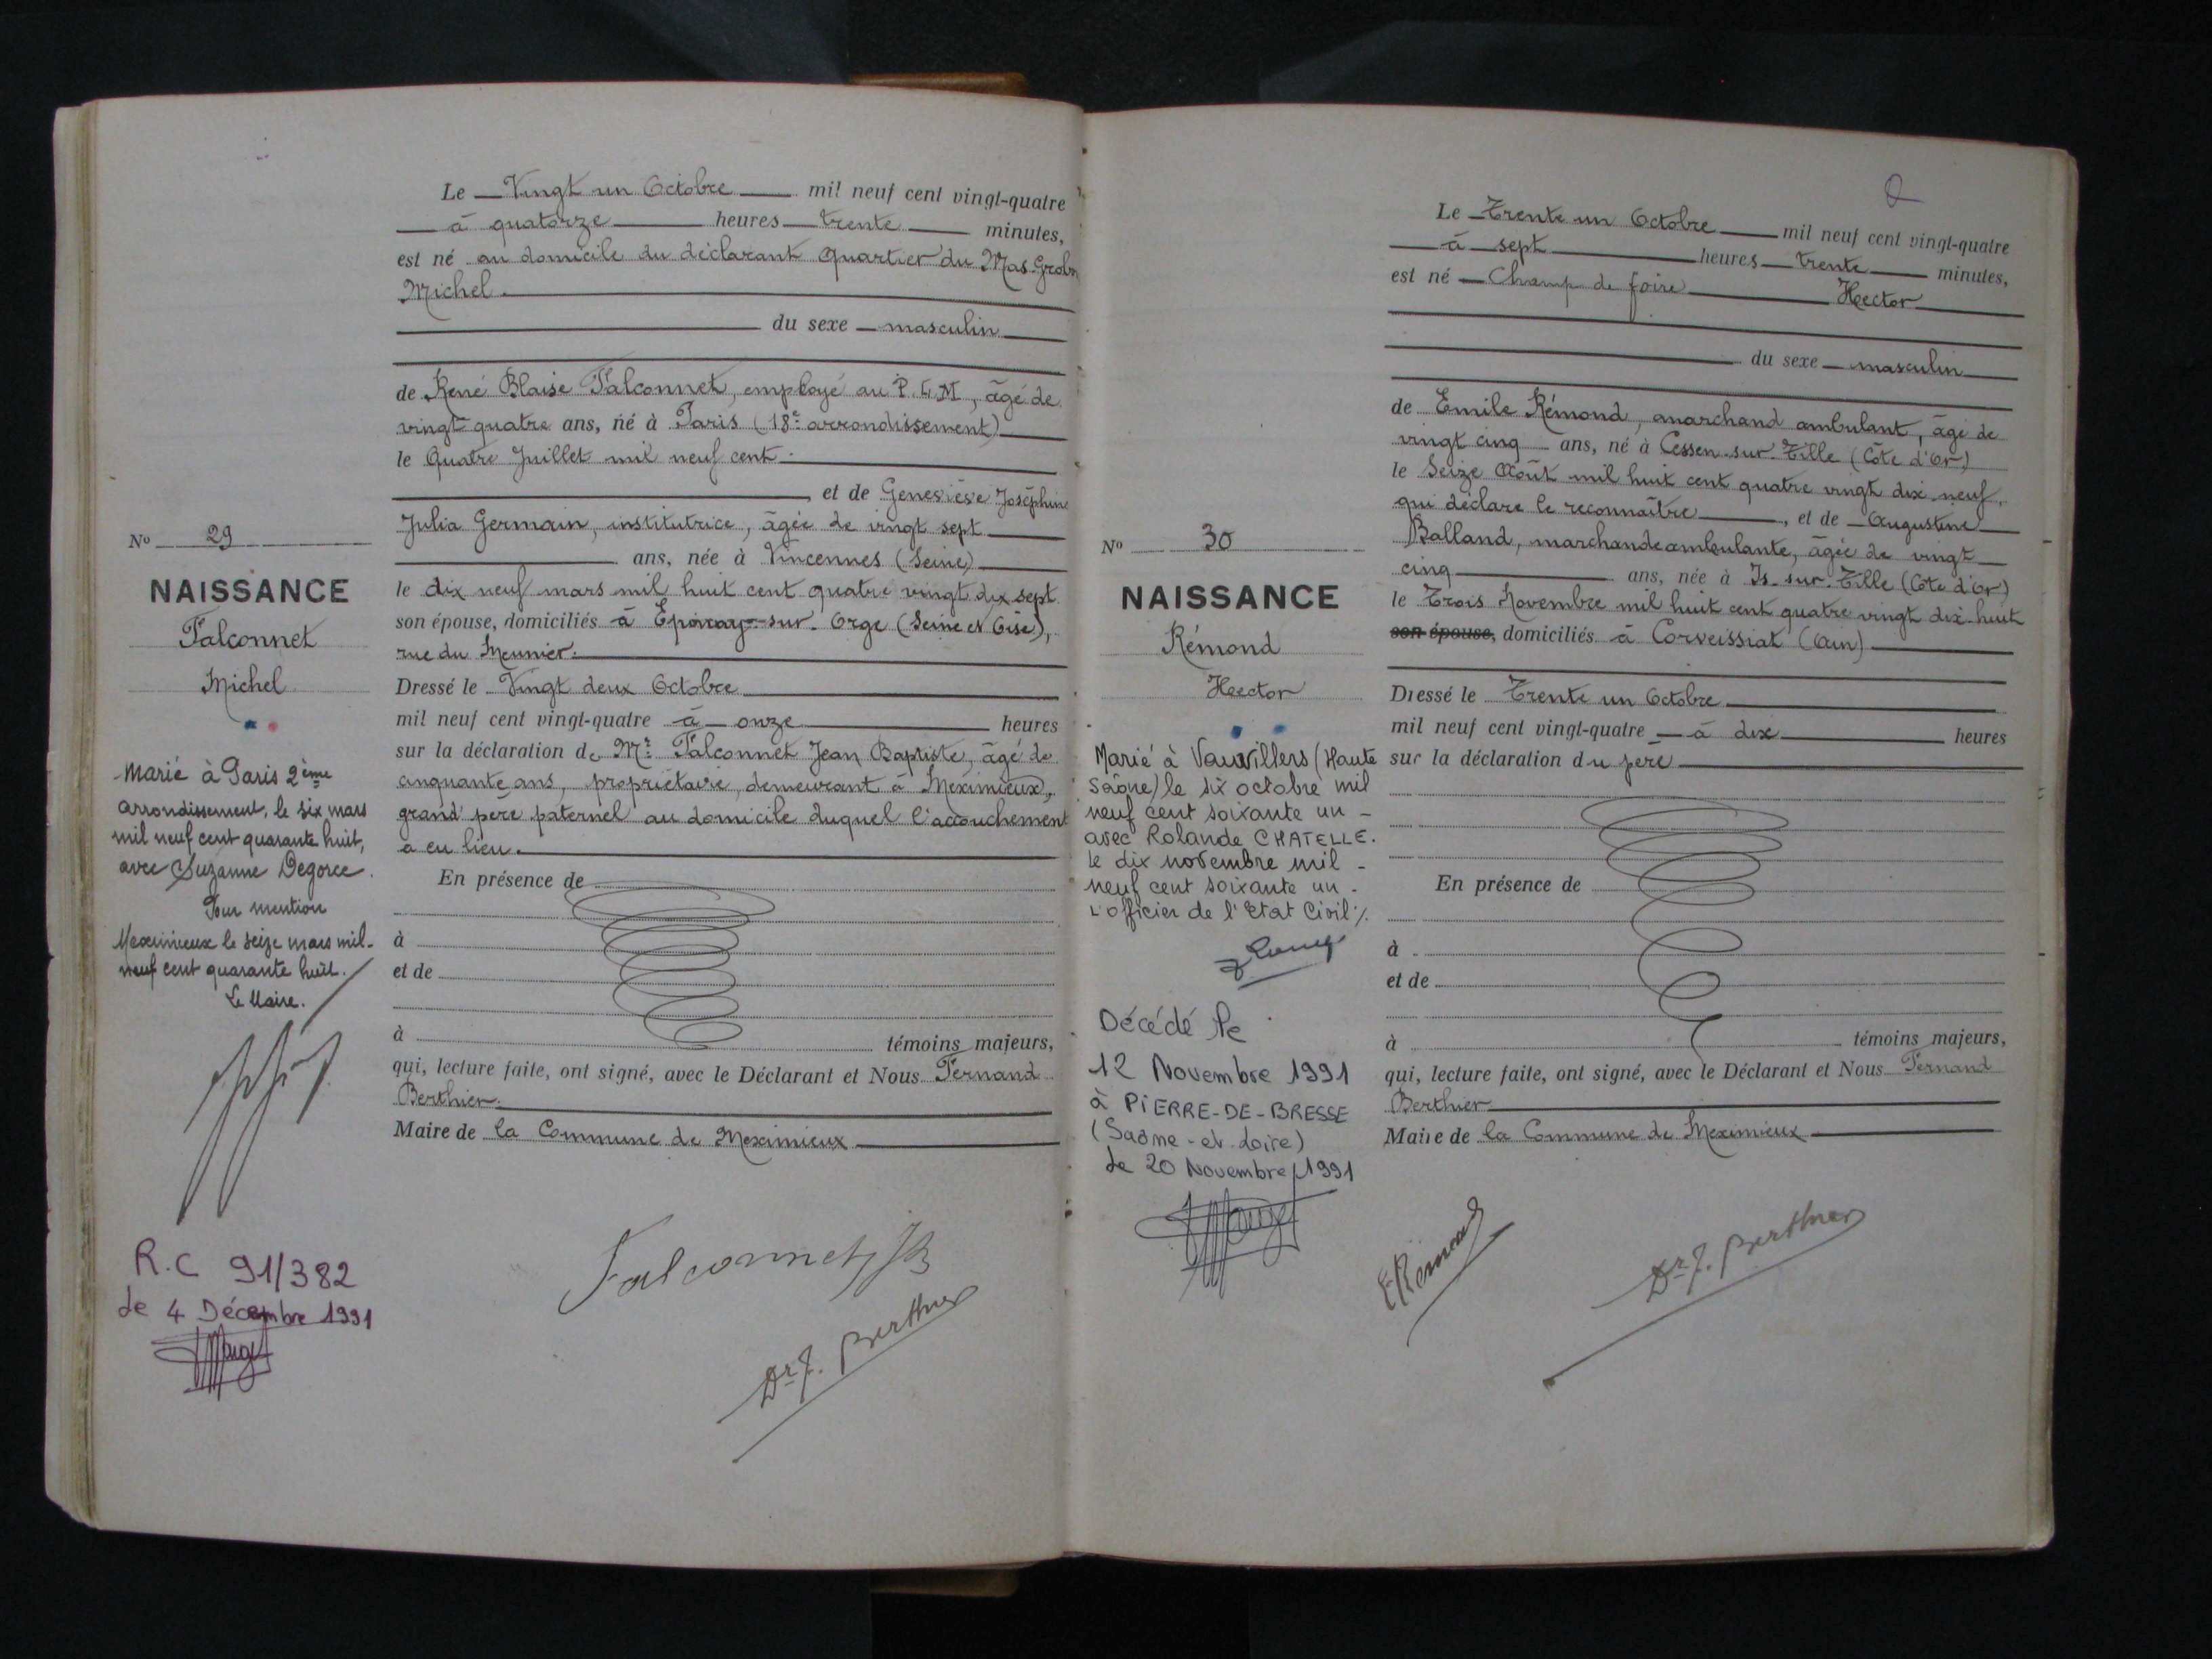 Le Vingt un Octobre mil neuf cent vingt-quatre
à quatorze heures trente minutes,
est né au domicile du déclarant quartier du Mas Grobon
Michel.
du sexe masculin
de René Blaise Falconnet, employé au P.L.M, âgé de
vingt quatre ans, né à Paris (18e arrondissement)
le Quatre Juillet mil neuf cent.
et de Geneviève Joséphine
Julia Germain, institutrice, âgée de vingt sept
ans, née à Vincennes (Seine)
le dix neuf mars mil huit cent quatre vingt dix sept
son épouse, domiciliés à Epinay-sur-Orge (Seine et Oise),
rue du Meunier.
Dressé le Vingt deux Octobre
mil neuf cent vingt-quatre à onze heures
sur la déclaration de Mr Falconnet Jean Baptiste, âgé de
cinquante ans, propriétaire, demeurant à Meximieux,
grand père paternel au domicile duquel l'accouchement
a eu lieu.
En présence de
à
et de
à témoins majeurs,
qui, lecture faite, ont signé, avec le Déclarant et Nous Fernand
Berthier.
Maire de la Commune de Meximieux
Falconnet JB
Dr F. Berthier
No 29
NAISSANCE
Falconnet
Michel
Marié à Paris 2ème
arrondissement, le six mars
mil neuf cent quarante huit,
avec Suzanne Degorce.
Pour mention
Meximieux le seize mars mil
neuf cent quarante huit.
Le Maire.
R.C 91/382
le 4 Décembre 1991
2
Le Trente un Octobre mil neuf cent vingt-quatre
à sept heures trente minutes,
est né Champ de foire Hector
du sexe masculin
de Emile Rémond, marchand ambulant, âgé de
vingt cinq ans, né à Cessen-sur-Tille (Côte d'Or)
le Seize Août mil huit cent quatre vingt dix neuf,
qui déclare le reconnaître, et de Augustine
Balland, marchande ambulante, âgée de vingt
cinq ans, née à Is-sur-Tille (Côte d'Or)
le Trois Novembre mil huit cent quatre vingt dix-huit
son épouse, domiciliés à Corveissiat (Ain)
Dressé le Trente un Octobre
mil neuf cent vingt-quatre à dix heures
sur la déclaration du père
En présence de
à
et de
à témoins majeurs,
qui, lecture faite, ont signé, avec le Déclarant et Nous Fernand
Berthier
Maire de la Commune de Meximieux
E Rémond
Dr F. Berthier
No 30
NAISSANCE
Rémond
Hector
Marié à Vauvillers (Haute
Saône) le six octobre mil
neuf cent soixante un -
avec Rolande CHATELLE.
le dix novembre mil -
neuf cent soixante un -
L'officier de l'Etat Civil ./.
Décédé le
12 Novembre 1991
à PIERRE-DE-BRESSE
(Saône-et-Loire)
le 20 Novembre 1991